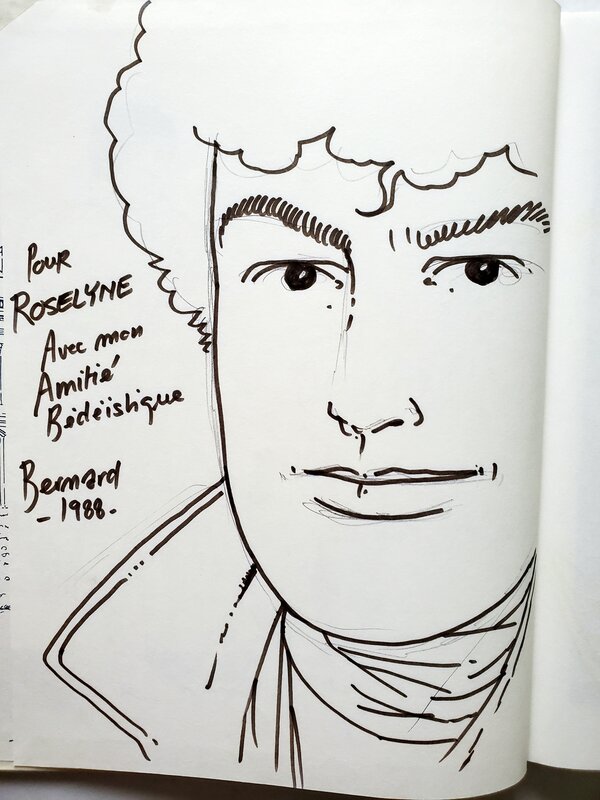 Pour
ROSELYNE
Avec mon
Amitié
Bédéistique
Bernard
- 1988 -